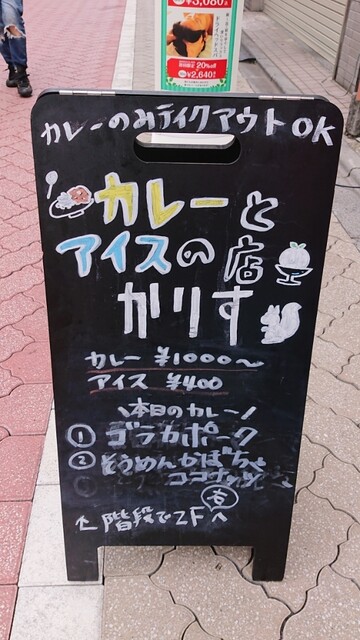 ¥3,080
20%off
¥2,640
カレーのみテイクアウトOK
カレーと
アイスの店
かりす
カレー ¥1000〜
アイス ¥400
\本日のカレー/
① ゴラカポーク
② そうめんかぼちゃ
ココナッツ
↑階段で2Fへ